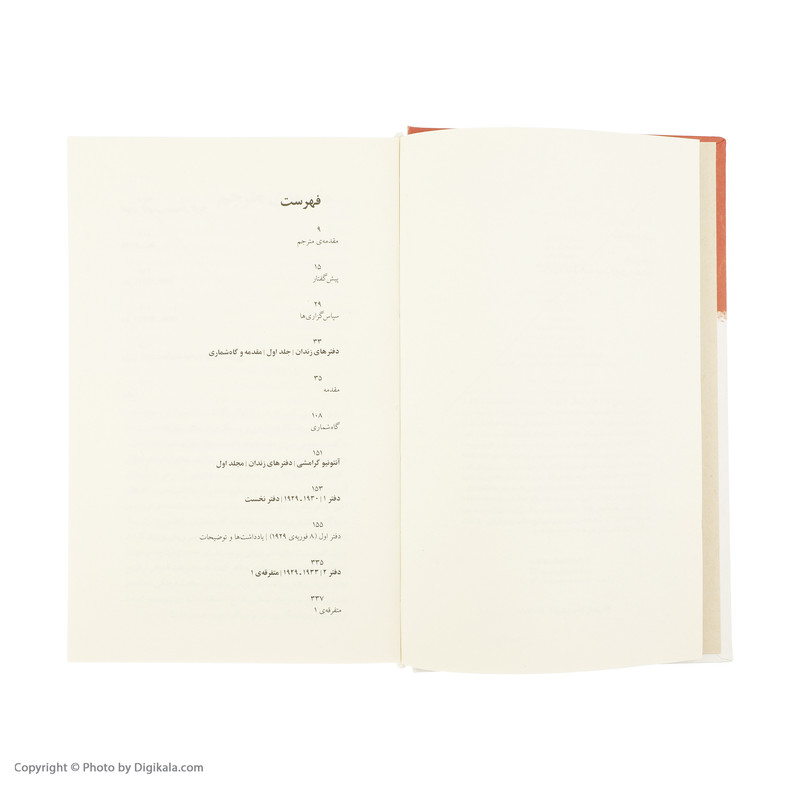 فهرست
۹
مقدمه‌ی مترجم
۱۵
پیش‌گفتار
۲۹
سپاس‌گزاری‌ها
۳۳
دفترهای زندان | جلد اول | مقدمه و گاه‌شماری
۳۵
مقدمه
۱۰۸
گاه‌شماری
۱۵۱
آنتونیو گرامشی | دفترهای زندان | مجلد اول
۱۵۳
دفتر ۱ | ۱۹۳۰ ـ ۱۹۲۹ | دفتر نخست
۱۵۵
دفتر اول (۸ فوریه‌ی ۱۹۲۹) | یادداشت‌ها و توضیحات
۳۳۵
دفتر ۲ | ۱۹۳۳ ـ ۱۹۲۹ | متفرقه‌ی ۱
۳۳۷
متفرقه‌ی ۱
Copyright © Photo by Digikala.com